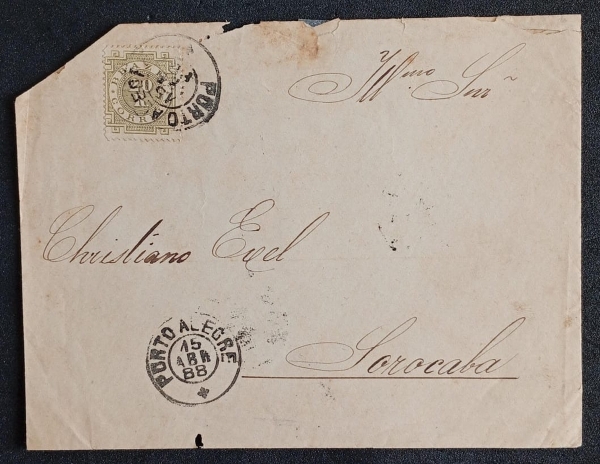 PORTO
15
Illmo Snr
Christiano Exel
Sorocaba
PORTO ALEGRE
15
ABR
88